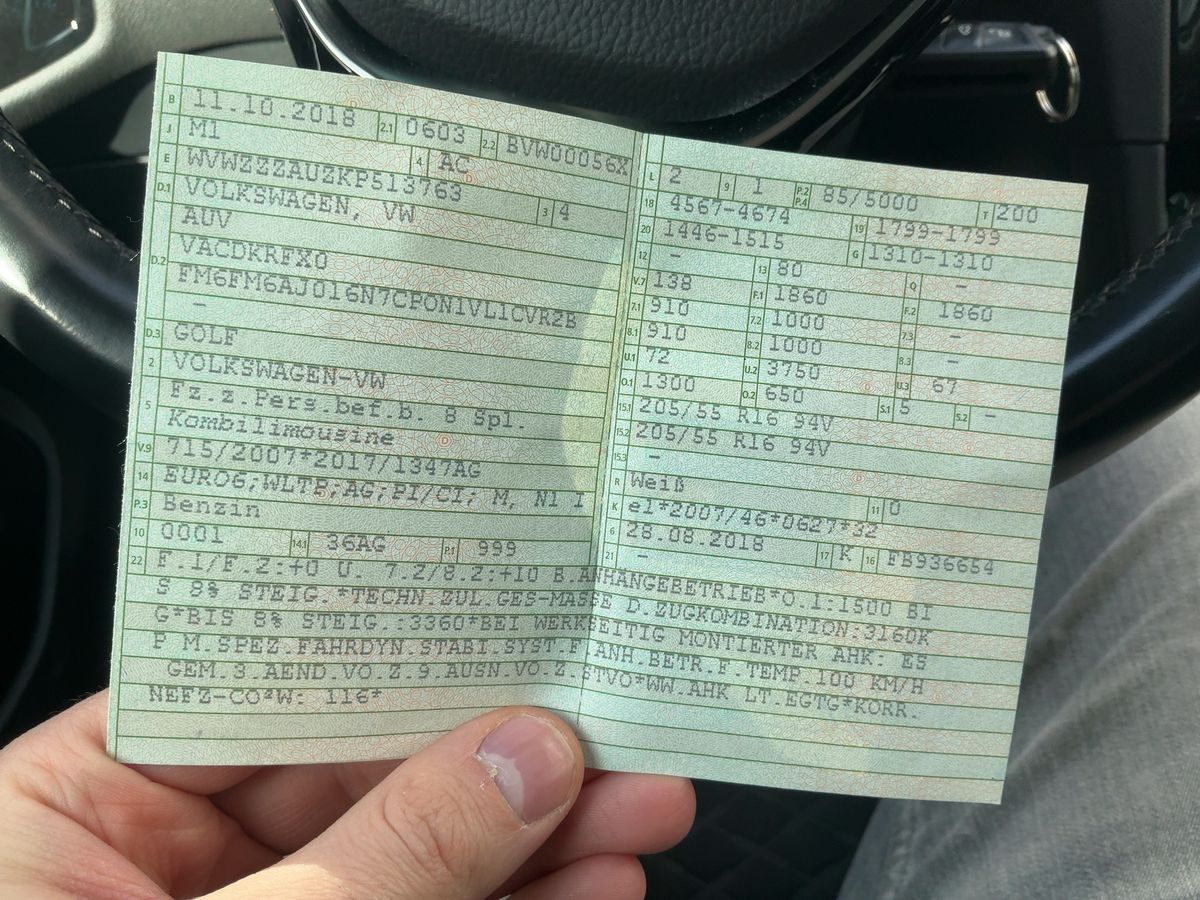 B 11.10.2018 2.1 0603 2.2 BVW00056X
J M1 4 AC
E WVWZZZAUZKP513763 3 4
D.1 VOLKSWAGEN, VW
AUV
D.2 VACDKRFX0
FM6FM6AJ016N7CPON1VL1CVR2B
-
D.3 GOLF
2 VOLKSWAGEN-VW
5 Fz.z.Pers.bef.b. 8 Spl.
Kombilimousine
V.9 715/2007*2017/1347AG
14 EURO6;WLTP;AG;PI/CI; M, N1 I
P.3 Benzin
10 0001 14.1 36AG P.1 999
L 2 9 1 P.2 P.4 85/5000 T 200
18 4567-4674 19 1799-1799
20 1446-1515 G 1310-1310
12 - 13 80 Q -
V.7 138 F.1 1860 F.2 1860
7.1 910 7.2 1000 7.3 -
8.1 910 8.2 1000 8.3 -
U.1 72 U.2 3750 U.3 67
O.1 1300 O.2 650 S.1 5 S.2 -
15.1 205/55 R16 94V
15.2 205/55 R16 94V
15.3 -
R Weiß 11 0
K e1*2007/46*0627*32
6 28.08.2018 17 K 16 FB936654
21 -
22 F.1/F.2:+0 U. 7.2/8.2:+10 B.ANHÄNGEBETRIEB*O.1:1500 BI
S 8% STEIG.*TECHN.ZUL.GES-MASSE D.ZUGKOMBINATION:3160K
G*BIS 8% STEIG.:3360*BEI WERKSEITIG MONTIERTER AHK: ES
P M.SPEZ.FAHRDYN.STABI.SYST.F.ANH.BETR.F.TEMP.100 KM/H
GEM.3.AEND.VO.Z.9.AUSN.VO.Z.STVO*WW.AHK LT.EGTG*KORR.
NEFZ-CO²W: 116*